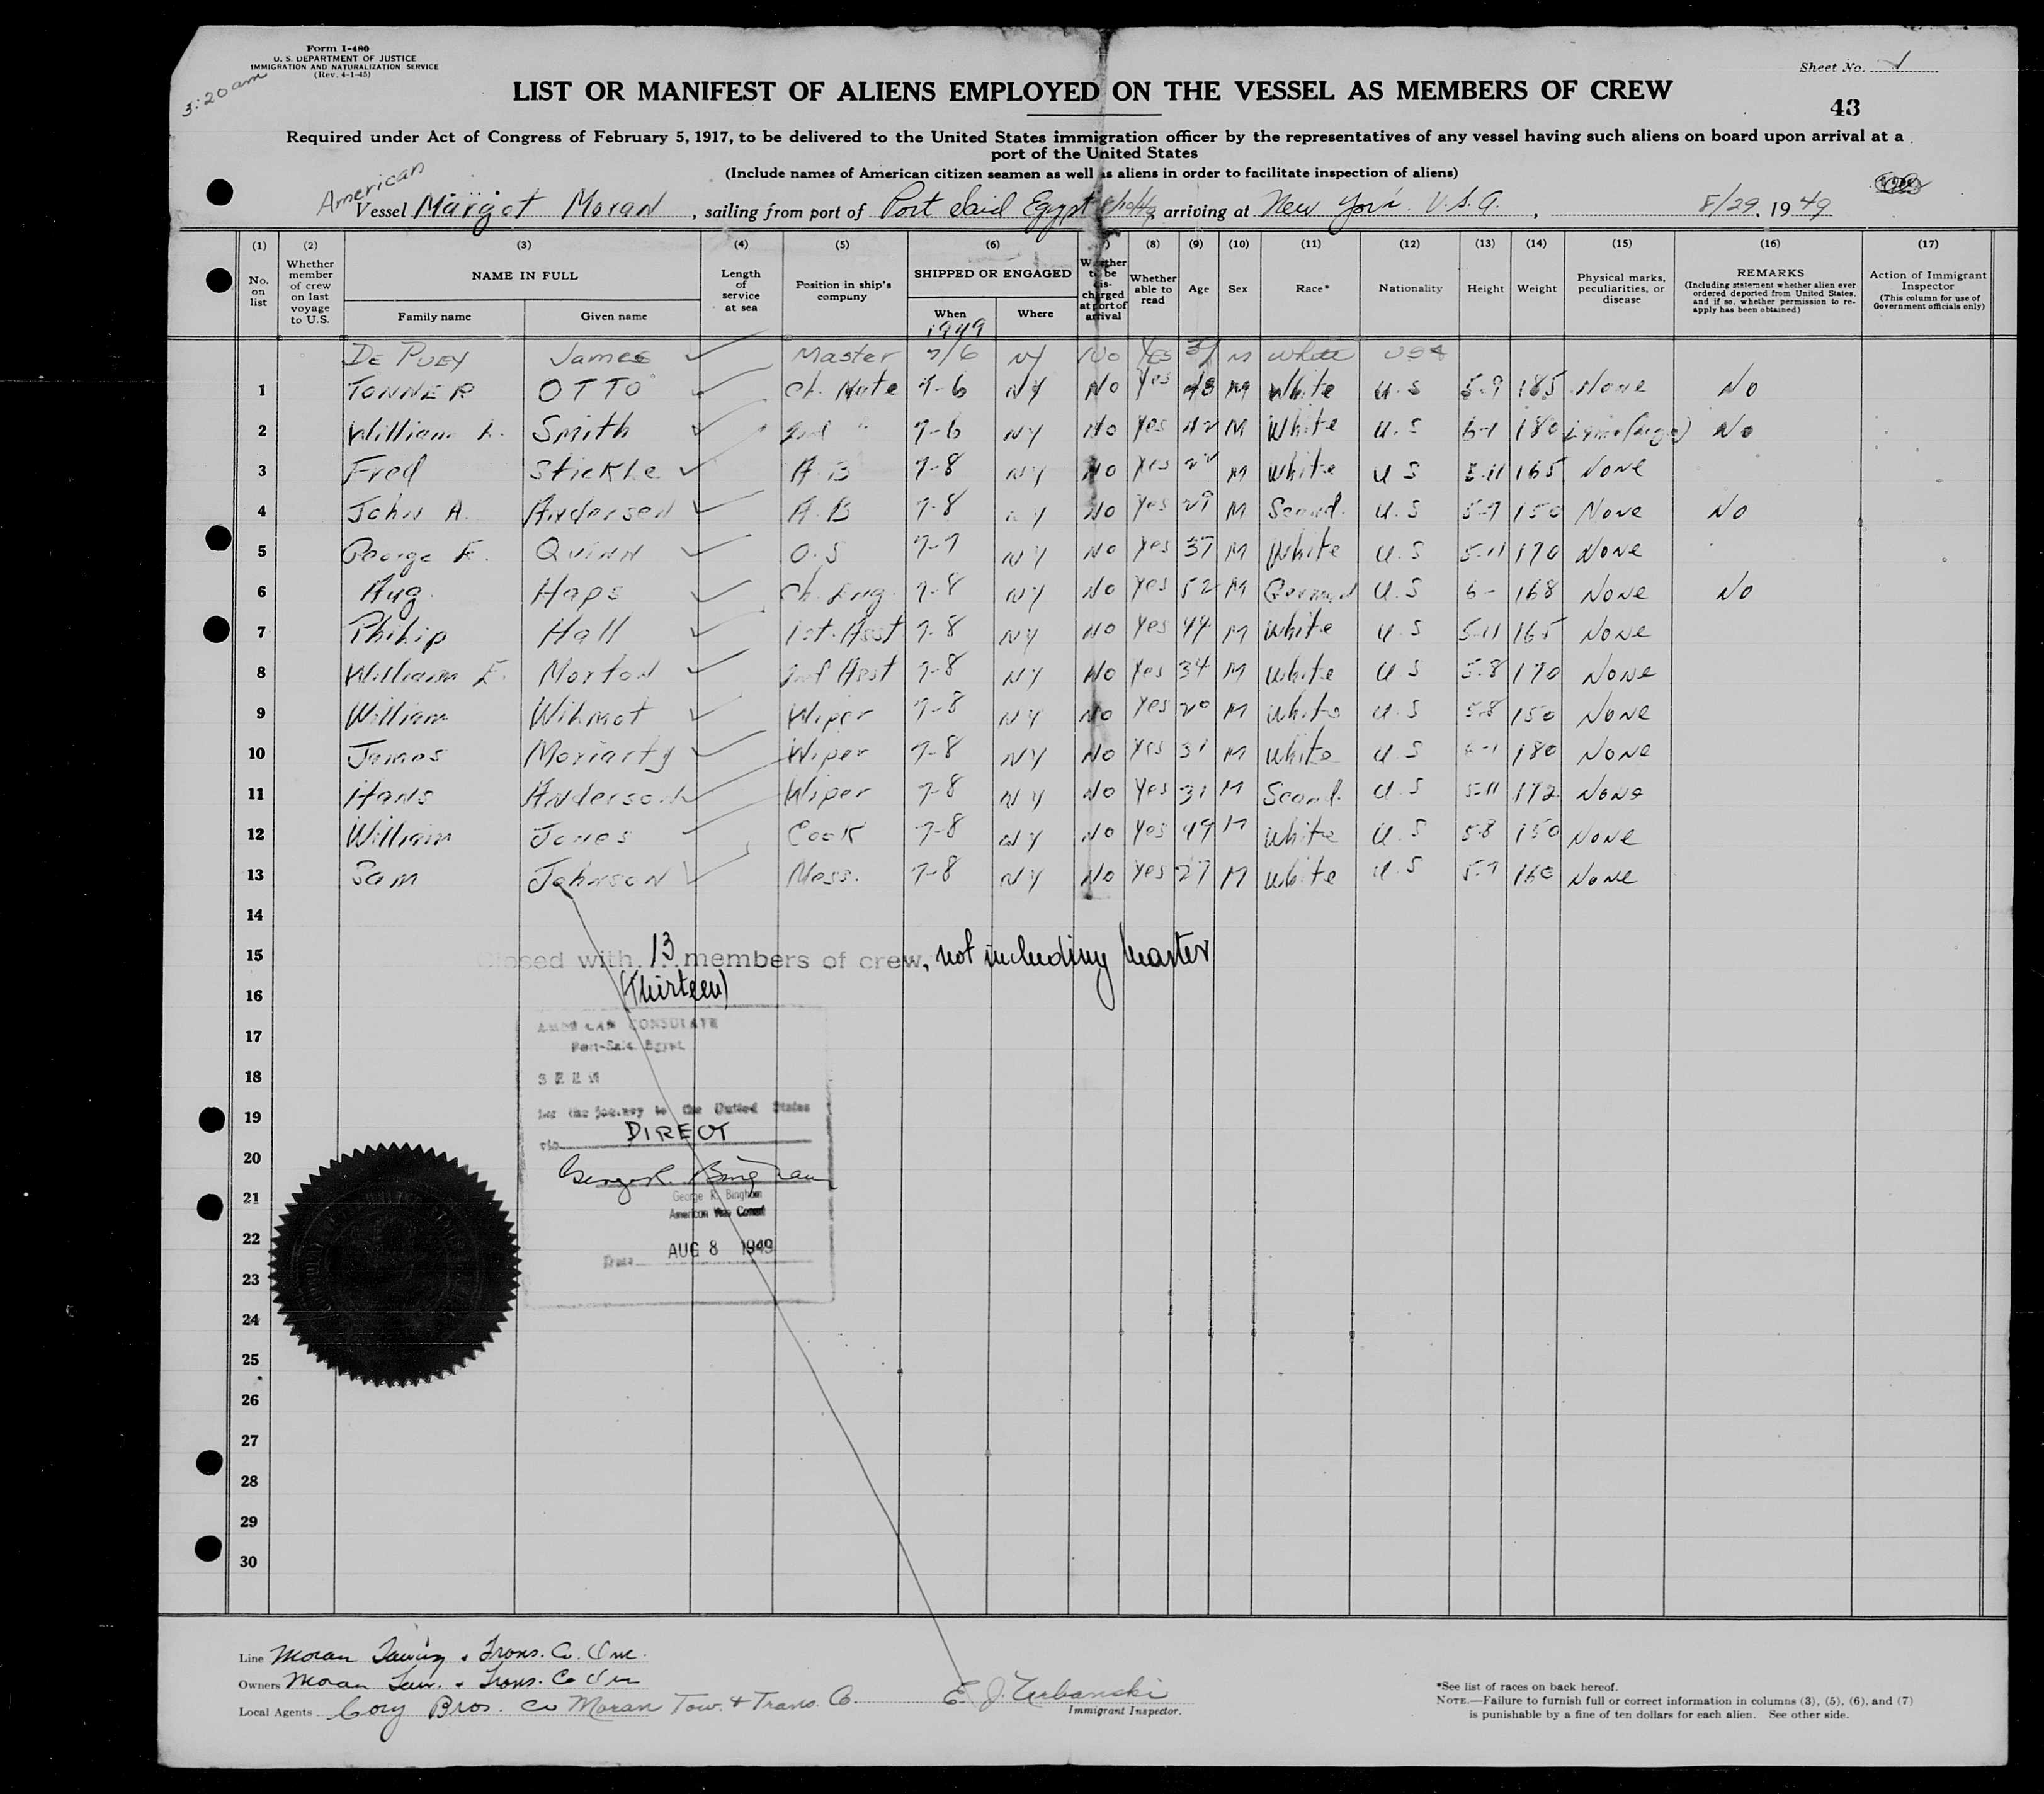 Form I-480
U. S. DEPARTMENT OF JUSTICE
IMMIGRATION AND NATURALIZATION SERVICE
(Rev. 4-1-45)
3:20am
Sheet No. 1
LIST OR MANIFEST OF ALIENS EMPLOYED ON THE VESSEL AS MEMBERS OF CREW
43
Required under Act of Congress of February 5, 1917, to be delivered to the United States immigration officer by the representatives of any vessel having such aliens on board upon arrival at a
port of the United States
(Include names of American citizen seamen as well as aliens in order to facilitate inspection of aliens)
American
Vessel Margot Moran, sailing from port of Port Said Egypt 8/10/49, arriving at New York U.S.A., 8/29, 1949
(1) (2) (3) (4) (5) (6) (7) (8) (9) (10) (11) (12) (13) (14) (15) (16) (17)
No. on list
Whether member of crew on last voyage to U.S.
NAME IN FULL
Family name Given name
Length of service at sea
Position in ship's company
SHIPPED OR ENGAGED
When Where
1949
Whether to be discharged at port of arrival
Whether able to read
Age
Sex
Race*
Nationality
Height
Weight
Physical marks, peculiarities, or disease
REMARKS
(Including statement whether alien ever ordered deported from United States, and if so, whether permission to reapply has been obtained)
Action of Immigrant Inspector
(This column for use of Government officials only)
DE PUEY James Master 7/6 NY No Yes 31 M White USA
1 TONNER OTTO Ch. Mate 7-6 NY No Yes 48 M White U.S 5-9 185 None No
2 William L. Smith 2nd " 7-6 NY No Yes 42 M White U.S 6-1 180 No
3 Fred Stickle A.B 7-8 NY No Yes M White U S 5-11 165 None
4 John A. Anderson A.B 7-8 NY No Yes 29 M Scand. U.S 5-9 150 None No
5 George E. Quinn O.S 7-7 NY No Yes 37 M White U.S 5-11 170 None
6 Aug. Haps Ch. Eng. 7-8 NY No Yes 52 M German U.S 6- 168 None No
7 Philip Hall 1st. Asst 7-8 NY No Yes 44 M White U.S 5-11 165 None
8 William E. Morton 2nd Asst 7-8 NY No Yes 34 M White U S 5-8 170 None
9 William Wilmot Wiper 7-8 NY No Yes 20 M White U.S 5-8 150 None
10 James Moriarty Wiper 7-8 NY No Yes 31 M White U.S 6-1 180 None
11 Hans Anderson Wiper 7-8 NY No Yes 31 M Scand. U.S 5-11 172 None
12 William Jones Cook 7-8 NY No Yes 49 M White U.S 5-8 150 None
13 Sam Johnson Mess. 7-8 NY No Yes 27 M White U.S 5-7 160 None
14
15 Closed with 13 members of crew, not including master
16 (Thirteen)
17 AMERICAN CONSULATE
Port-Said, Egypt
18 SEEN
19 For the journey to the United States
via DIRECT
20 George R. Bingham
21 George R. Bingham
American Vice Consul
22
AUG 8 1949
23
24
25
26
27
28
29
30
Line Moran Towing & Trans. Co. Inc.
Owners Moran Tow. & Trans. Co Inc
Local Agents Cory Bros. Co Moran Tow. & Trans. Co.
E. J. Urbanski
Immigrant Inspector.
*See list of races on back hereof.
NOTE.—Failure to furnish full or correct information in columns (3), (5), (6), and (7)
is punishable by a fine of ten dollars for each alien. See other side.